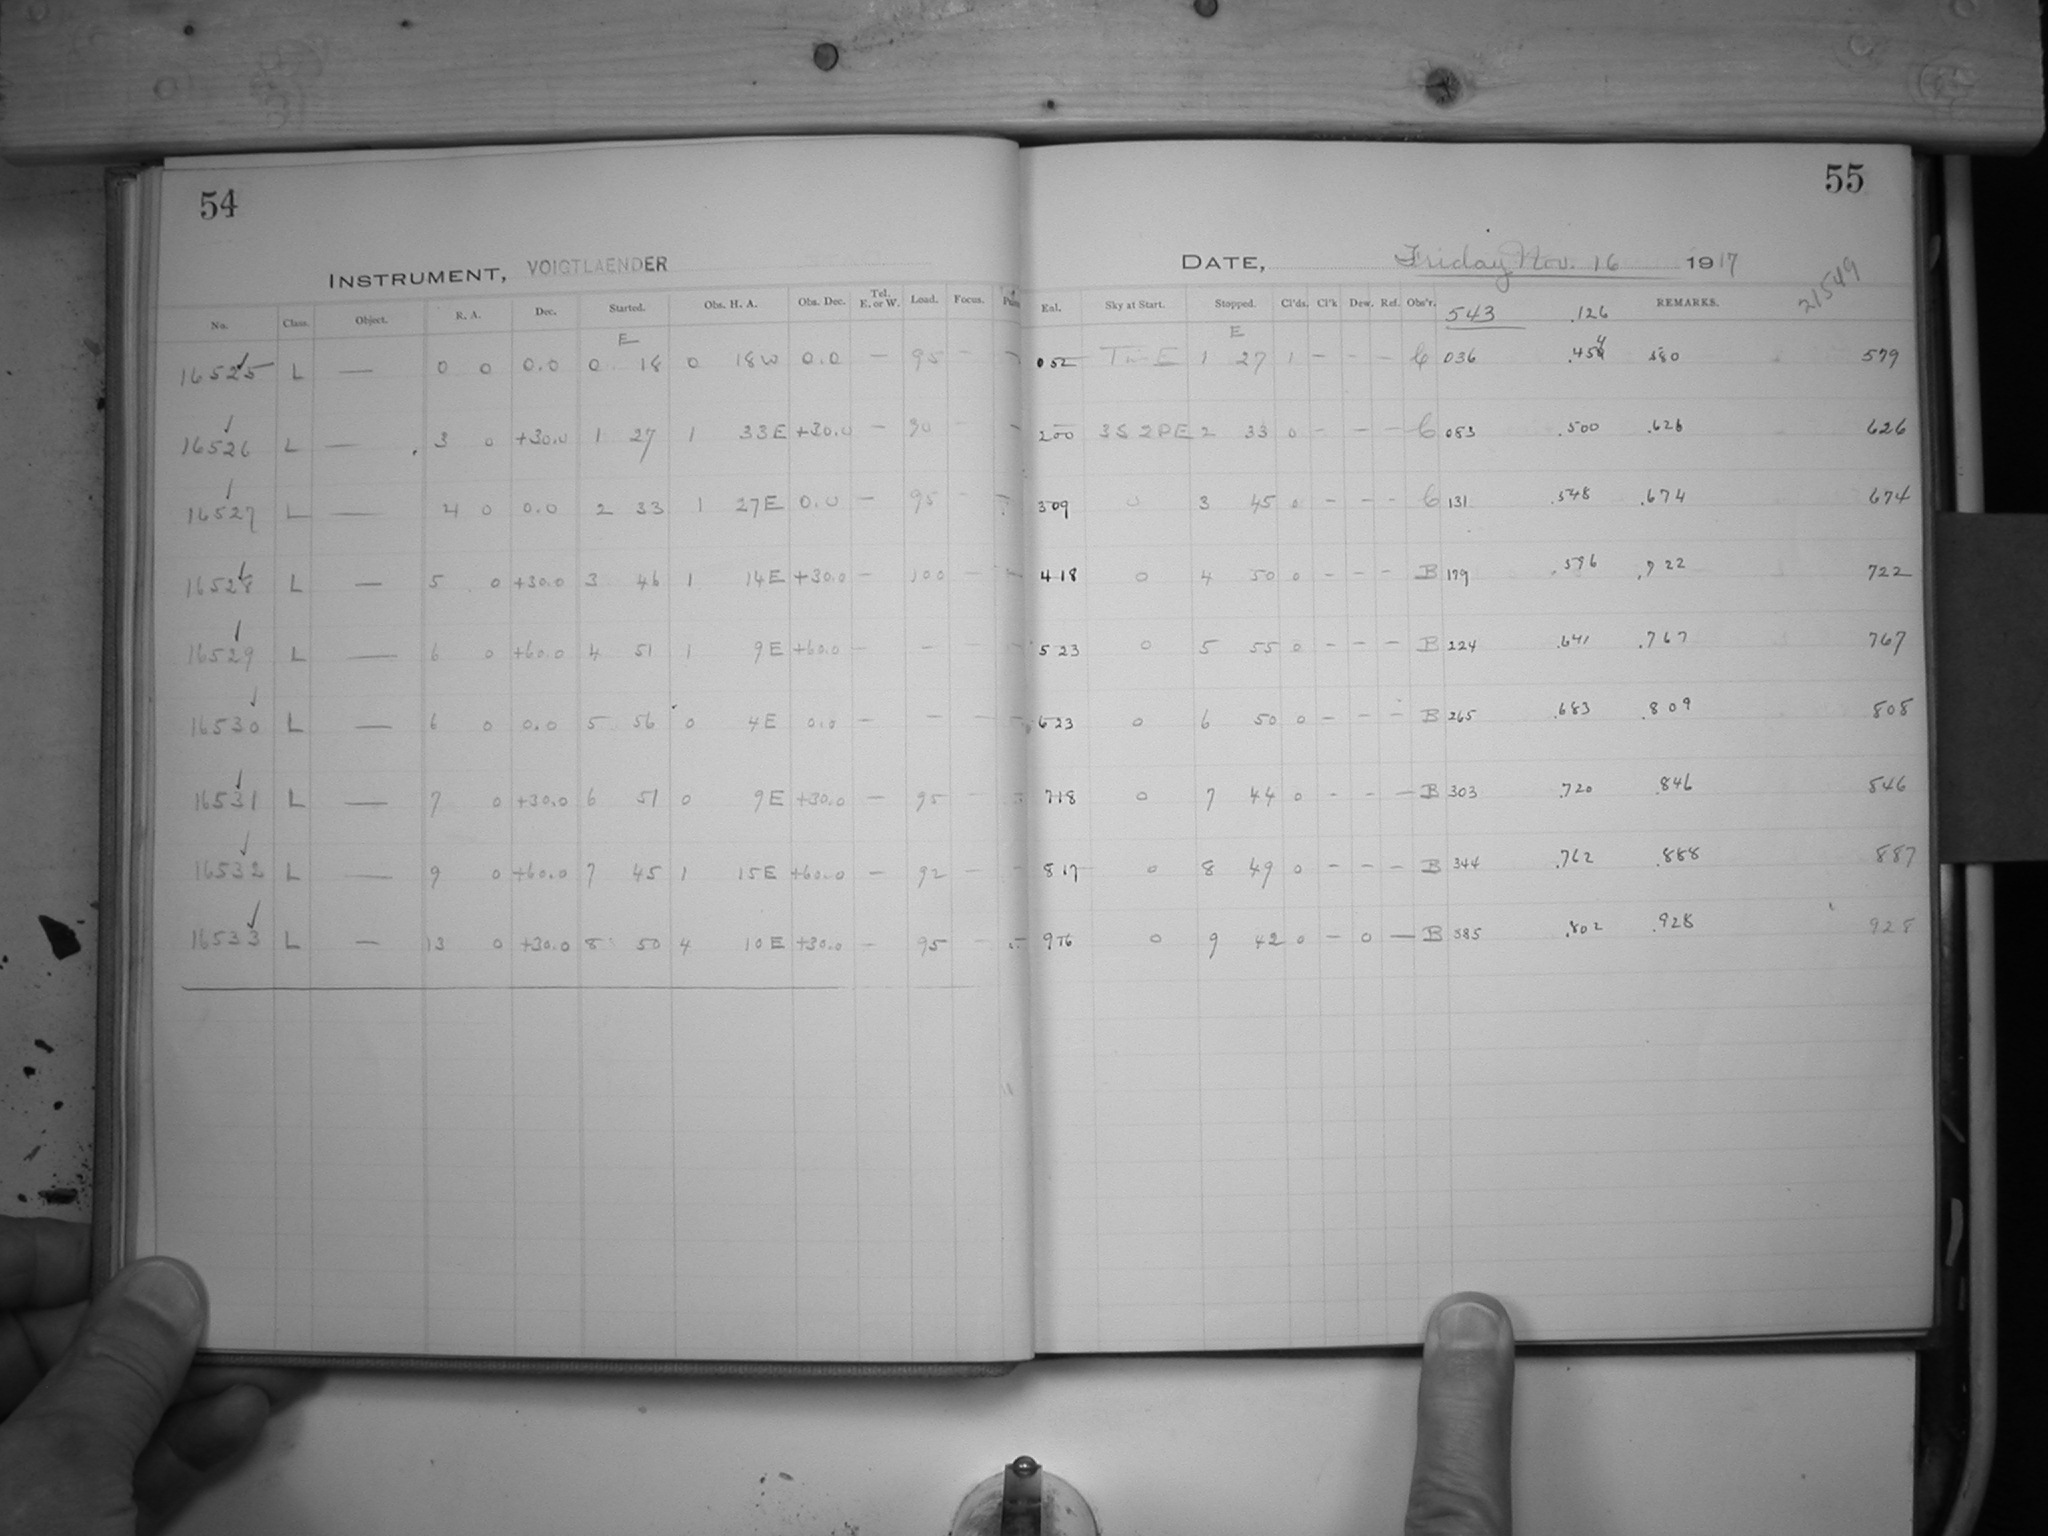 54
55
INSTRUMENT, VOIGTLAENDER
DATE, Friday Nov. 16 1917
21549
No. Class. Object. R. A. Dec. Started. Obs. H. A. Obs. Dec. Tel. E. or W. Load. Focus. Enl. Sky at Start. Stopped. Cl'ds. Cl'k Dew. Ref. Obs'r. 543 .126 REMARKS.
E E
16525 L — 0 0 0.0 0 18 0 18W 0.0 — 95 — 052 1 27 1 — — — C 036 .454 580 579
16526 L — 3 0 +30.0 1 27 1 33E +30.0 — 30 — 200 3S 2PE 2 33 0 — — — C 083 .500 .626 626
16527 L — 4 0 0.0 2 33 1 27E 0.0 — 95 — 309 0 3 45 0 — — — C 131 .548 .674 674
16528 L — 5 0 +30.0 3 46 1 14E +30.0 — 100 — — 418 0 4 50 0 — — — B 179 .596 .722 722
16529 L — 6 0 +60.0 4 51 1 9E +60.0 — — — — 523 0 5 55 0 — — — B 224 .641 .767 767
16530 L — 6 0 0.0 5 56 0 4E 0.0 — — — — 623 0 6 50 0 — — — B 265 .683 .809 808
16531 L — 7 0 +30.0 6 51 0 9E +30.0 — 95 — 718 0 7 44 0 — — — B 303 .720 .846 846
16532 L — 9 0 +60.0 7 45 1 15E +60.0 — 92 — — 817 0 8 49 0 — — — B 344 .762 .888 887
16533 L — 13 0 +30.0 8 50 4 10E +30.0 — 95 — 0 9 42 0 — 0 — B 385 .802 .928 928